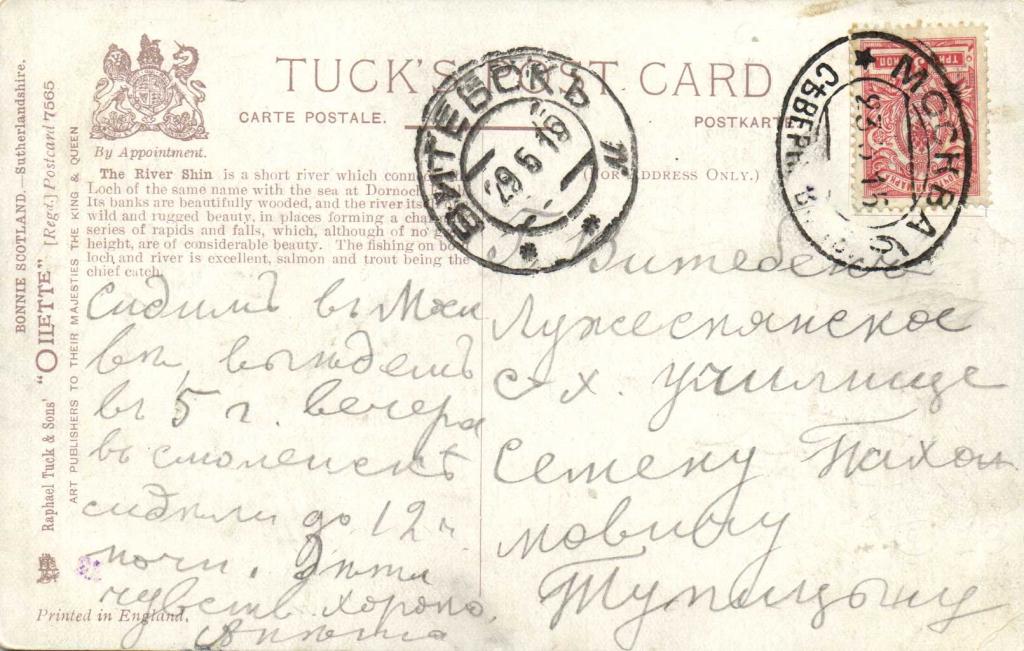 TUCK'S POST CARD
CARTE POSTALE.
POSTKARTE
(FOR ADDRESS ONLY.)
By Appointment.
The River Shin is a short river which
Loch of the same name with the sea at Dornoch
Its banks are beautifully wooded, and the river its
wild and rugged beauty, in places forming a
series of rapids and falls, which, although of no
height, are of considerable beauty. The fishing on
loch and river is excellent, salmon and trout being the
chief catch.
BONNIE SCOTLAND.—Sutherlandshire.
Raphael Tuck & Sons' "OILETTE" [Regd.] Postcard 7565
ART PUBLISHERS TO THEIR MAJESTIES THE KING & QUEEN
Printed in England.
ВИТЕБСКЪ
29 5 15
МОСКВА
сидимъ въ Моск
вы, выѣдемъ
въ 5 г. вечера
въ смоленскѣ
сидѣли до 12 ч.
ночи. Дѣти
чувств. хорошо.
Витебскъ
Лужеснянское
с-х. училище
Семену Пахо
мовичу
Тупицыну